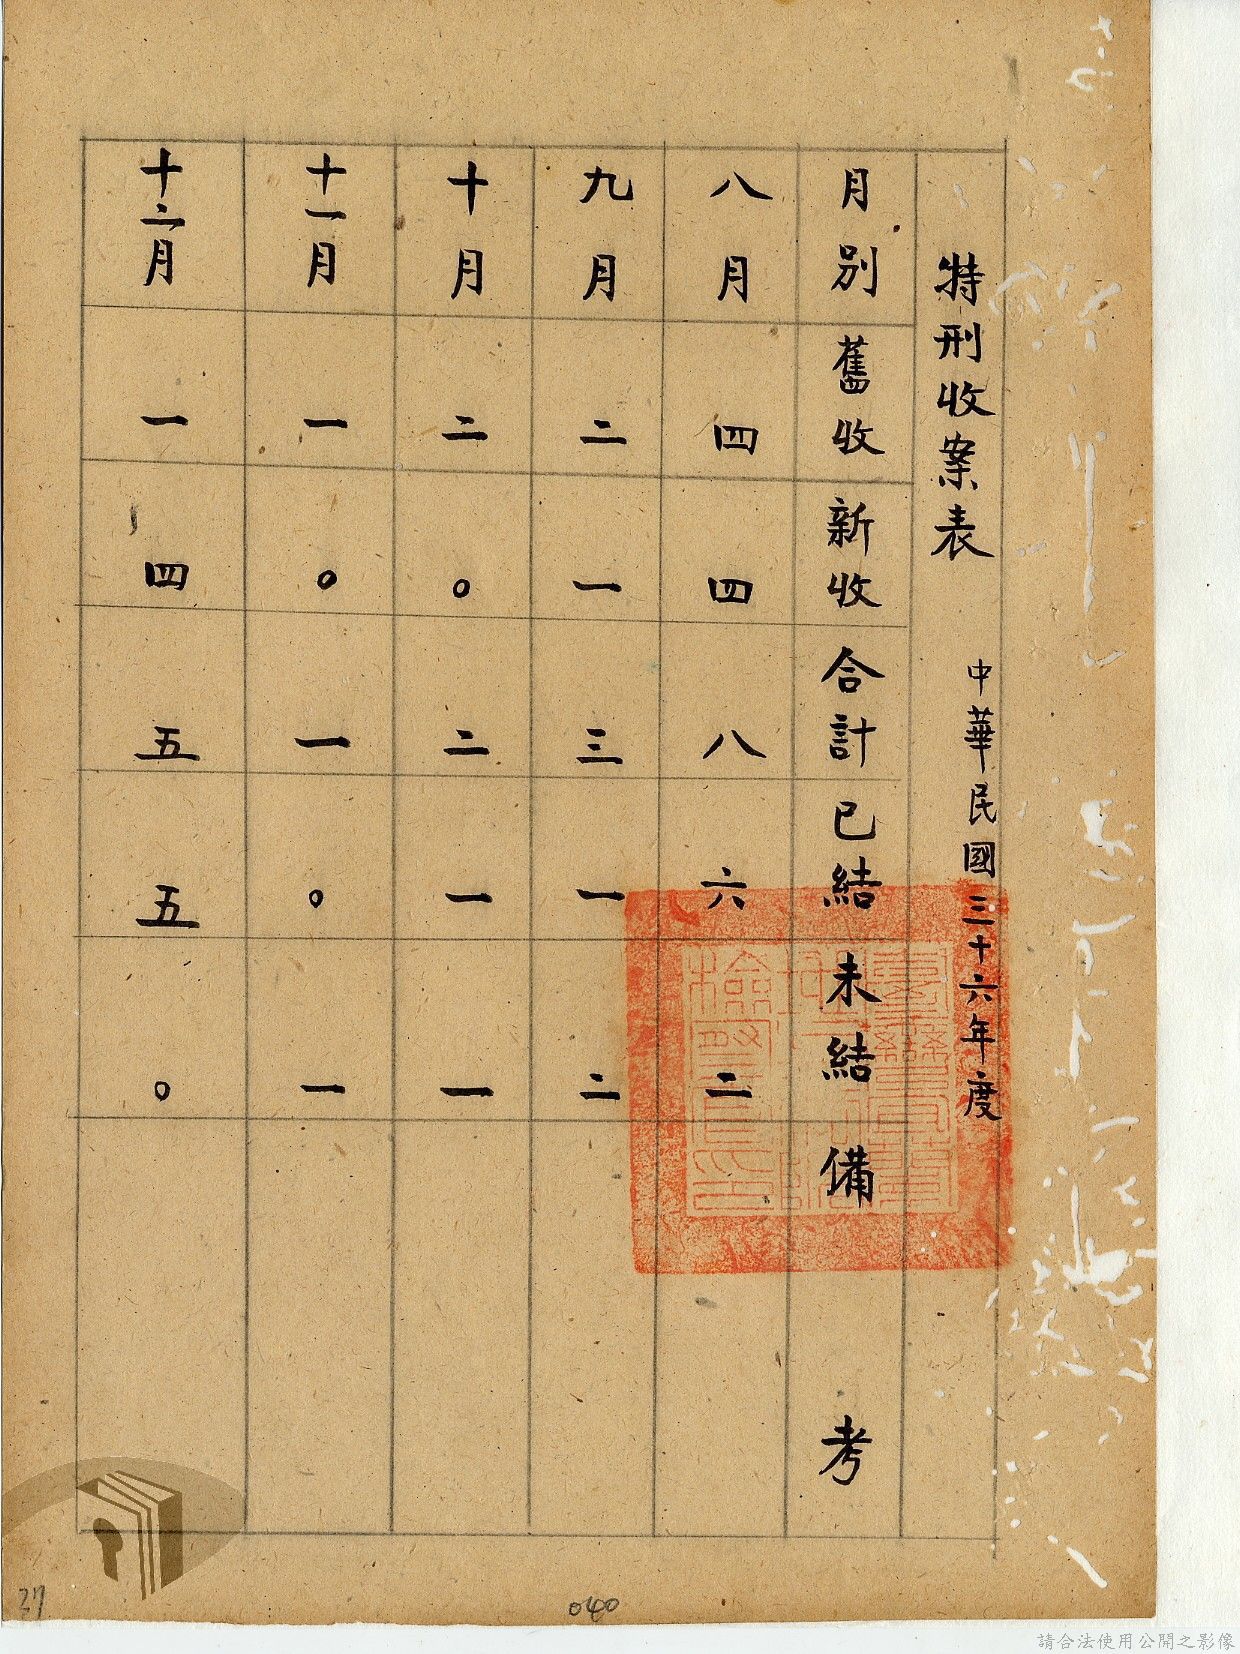 特刑收案表 中華民國三十六年度
月別 舊收 新收 合計 已結 未結 備考
八月 四 四 八 六 二
九月 二 一 三 一 二
十月 二 〇 二 一 一
十一月 一 〇 一 〇 一
十二月 一 四 五 五 〇
27
040
請合法使用公開之影像